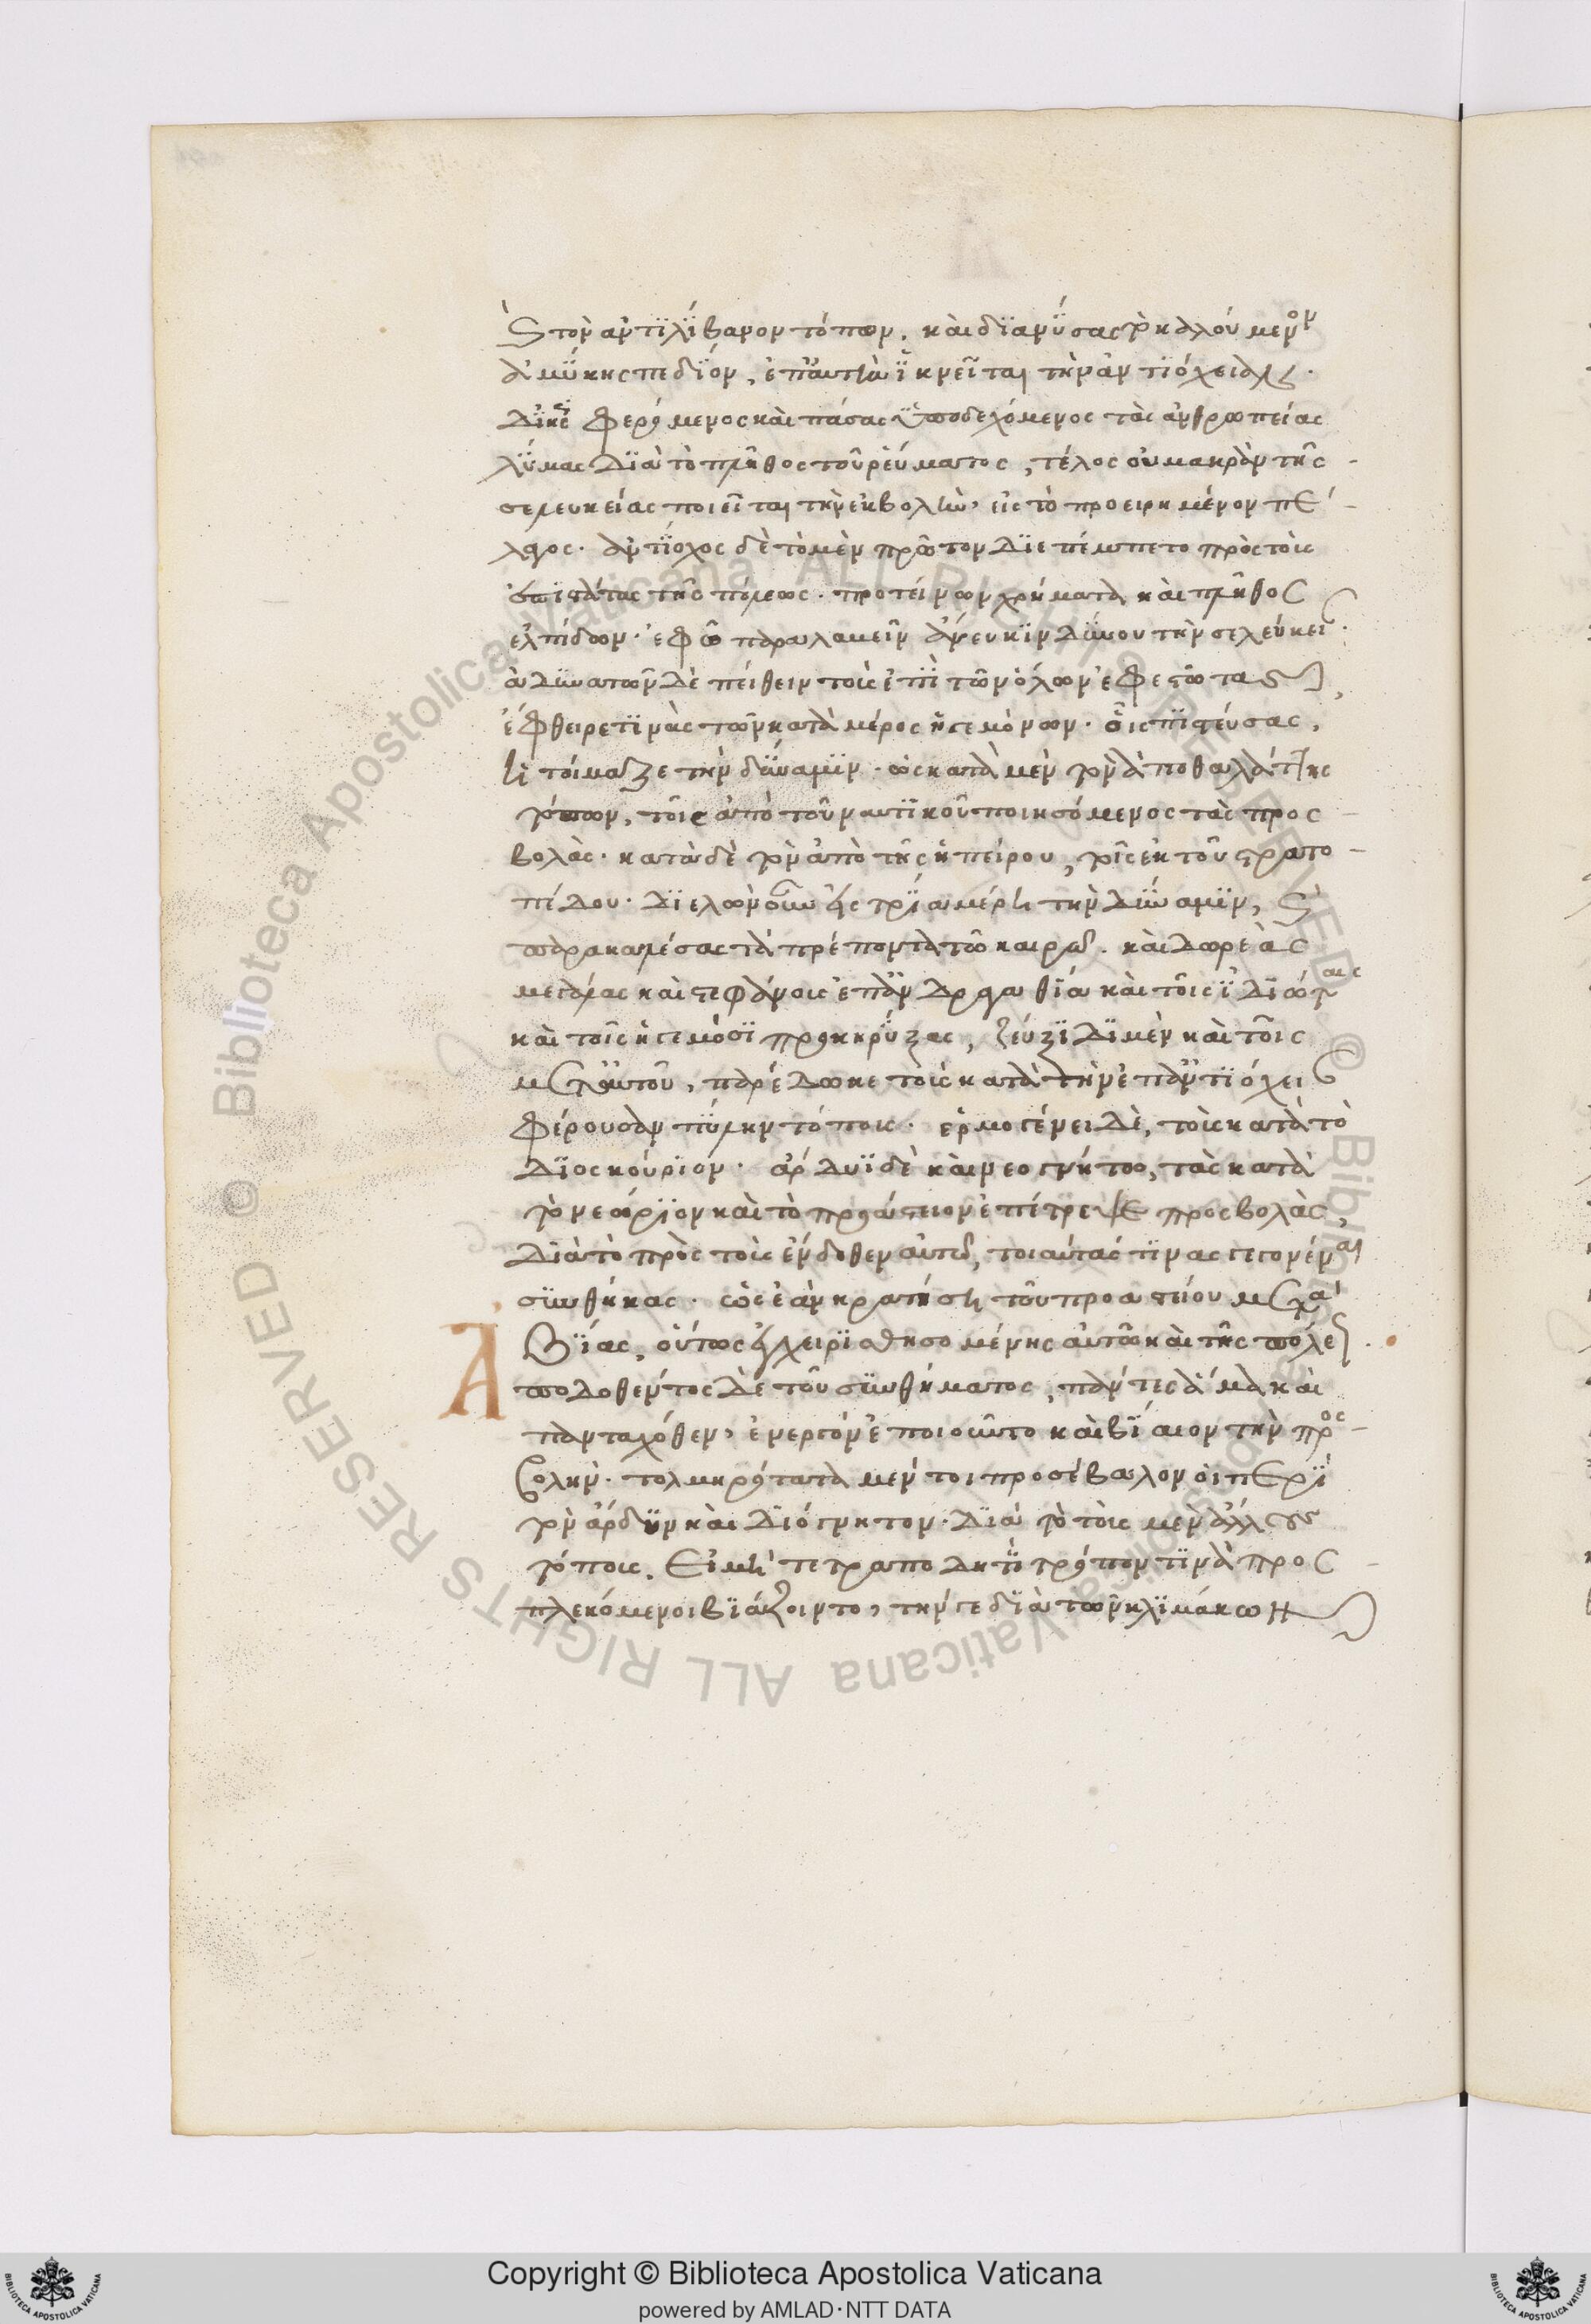 καὶ τὸν ἀντϊλίβανον τόπων. καὶ διανΰσας τὸ καλούμενον
ἀμΰκης πεδίον, ἐπ' αὐτὴν ἱκνεῖται τὴν ἀντιόχειαν.
φερόμενος καὶ πάσας ὑποδεχόμενος τὰς ἀνθρωπείας
λύμας διὰ τὸ πλῆθος τοῦ ῥεύματος, τέλος οὐ μακρὰν τῆς
σελευκείας ποιεῖται τὴν ἐκβολὴν, εἰς τὸ προειρημένον πέ
λαγος. ἀντίοχος δὲ τὸ μὲν πρῶτον διεπέμπετο πρὸς τοὺς
ἐπιστάτας τῆς πόλεως. προτείνων χρήματα καὶ πλῆθος
ἐλπίδων. ἐφ' ᾧ παραλαβεῖν ἄνευ κινδύνου τὴν σελεύκειαν.
ἀδυνατῶν δὲ πείθειν τοὺς ἐπὶ τῶν ὅλων ἐφεστῶτας,
ἔφθειρε τινὰς τῶν κατὰ μέρος ἡγεμόνων. οἷς πιστεύσας,
ἡτοίμαζε τὴν δύναμιν. ὡς κατὰ μὲν τὸν ἀπὸ θαλάττης
τόπον, τοῖς ἀπὸ τοῦ ναυτικοῦ ποιησόμενος τὰς προς
βολὰς. κατὰ δὲ τὸν ἀπὸ τῆς ἠπείρου, τοῖς ἐκ τοῦ στρατο
πέδου. διελὼν οὖν εἰς τρία μέρη τὴν δύναμιν, καὶ
παρακαλέσας τὰ πρέποντα τῷ καιρῷ. καὶ δωρεὰς
μεγάλας καὶ στεφάνους ἐπ' ἀνδραγαθίᾳ καὶ τοῖς ἰδιώταις
καὶ τοῖς ἡγεμόσι προκηρύξας, ζεύξιδι μὲν καὶ τοῖς
μετ' αὐτοῦ, παρέδωκε τοὺς κατὰ τὴν ἐπ' ἀντιόχειαν
φέρουσαν πύλην τόπους. ἑρμογένει δὲ, τοὺς κατὰ τὸ
διοσκούριον. ἄρδυϊ δὲ καὶ νεογνήτῳ, τὰς κατὰ
τὸ νεώριον καὶ τὸ προάστειον ἐπέτρεψε προσβολὰς,
διὰ τὸ πρὸς τοὺς ἔνδοθεν αὐτῷ, τοιαύτας τινας γεγονέναι
συνθήκας. ὡς ἐὰν κρατήσῃ τοῦ προαστίου μετὰ
βίας, οὕτως ἐγχειρισθησομένης αὐτῷ καὶ τῆς πόλεως.
Ἀποδοθέντος δὲ τοῦ συνθήματος, πάντες ἅμα καὶ
πανταχόθεν, ἐνεργὸν ἐποιοῦντο καὶ βίαιον τὴν προς
βολήν. τολμηρότατα μέν τοι προσέβαλον οἱ περὶ
τὸν ἄρδυν καὶ διόγνητον. διὰ τὸ τοὺς μὲν ἄλλους
τόπους, εἰ μὴ τετραποδητὶ τρόπον τινὰ προς
πλεκόμενοι βιάζοιντο, τήν γε διὰ τῶν κλιμάκων
Copyright © Biblioteca Apostolica Vaticana
powered by AMLAD·NTT DATA